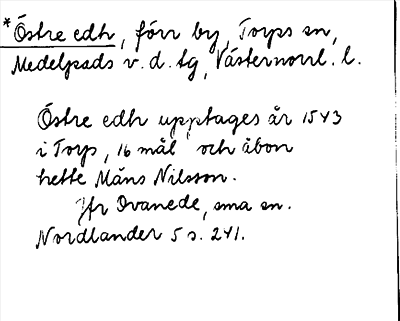 *Östre edh, förr by, Torps sn,
Medelpads v. d. tg, Västernorrl. l.
Östre edh upptages år 1543
i Torp, 16 mål och åbon
hette Måns Nilsson.
Jfr Ovanede, sma sn.
Nordlander 5 s. 241.